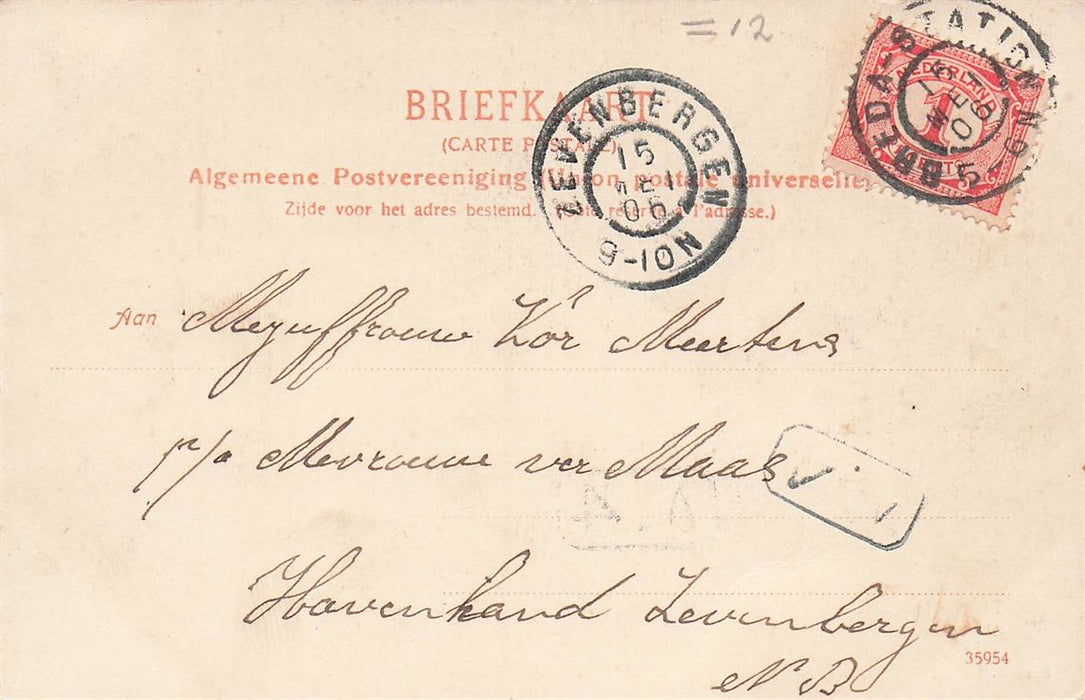 = 12
BREDA-STATION
NEDERLAND
1
BRIEFKAART
(CARTE POSTALE)
Algemeene Postvereeniging Union postale universelle
Zijde voor het adres bestemd. (Côté réservé à l'adresse.)
ZEVENBERGEN
15
06
9-10N
Aan Mejuffrouw Kor Meertens
p/a Mevrouw ver Maas
Havenkand Zevenbergen
N B
35954